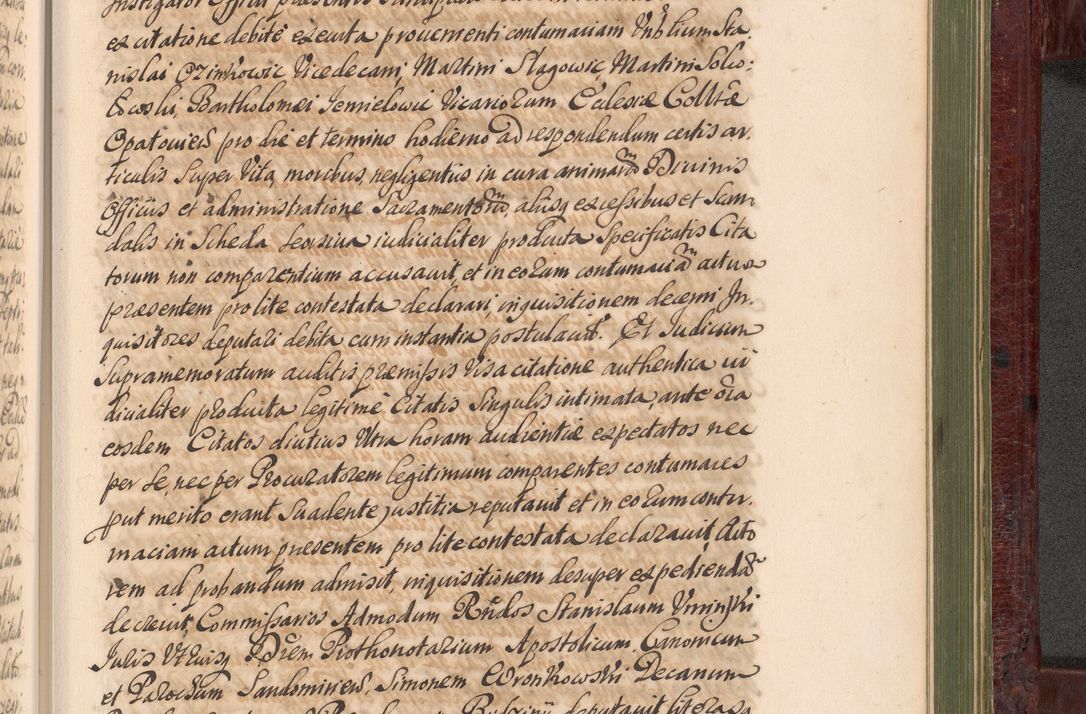 Instigator Officii presentis
ex citatione debite executa provenienti contumaciam Vnblium Sta
nislai Ozimkowic Vicedecani, Martini Slagowic, Martini Soko:
łowski, Bartholomei Jemielowic Vicariorum Ecclesiæ Colltæ
Opatovien pro die et termino hodierno ad respondendum certis ar
ticulis super Vita, moribus, negligentiis in cura animarũ Divinis
Officiis et administratione Sacramentorũ, aliisq excessibus et Scan
dalis in Scheda seorsiva iudicialiter producta Specificatis Cita
torum non comparentium accusavit, et in eorum contumaciã actum
presentem pro lite contestata declarari, inquisitionem decerni In
quisitores deputari debita cum instantia postulavit. Et Iudicium
Supramemoratum auditis præmissis Visa citatione authentica iu
dicialiter producta legitime Citatis Singulis intimata, ante oĩa
eosdem Citatos diutius Vltra horam audientiæ expectatos nec
per se, nec per Procuratorem legitimum comparentes contumaces
put merito erant Suadente justitia reputavit et in eorum contu
maciam actum presentem pro lite contestata declaravit Acto
rem ad probandum admisit, inquisitionem desuper expediendã
decrevit, Commissarios Admodum Rndos Stanislaum
Juris Vtriusq Drem Prothonotarium Apostolicum, Canonicum
et Parochum Sandomirien, Simonem Wronkowski Decanum
deputavit literasq